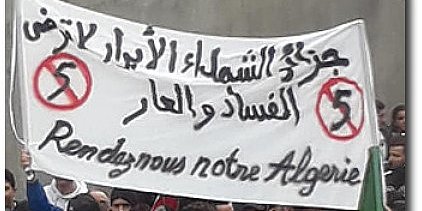 جزائر الشهداء الأبرار لا ترضى
5 الفساد والعار 5
Rendez nous notre Algerie